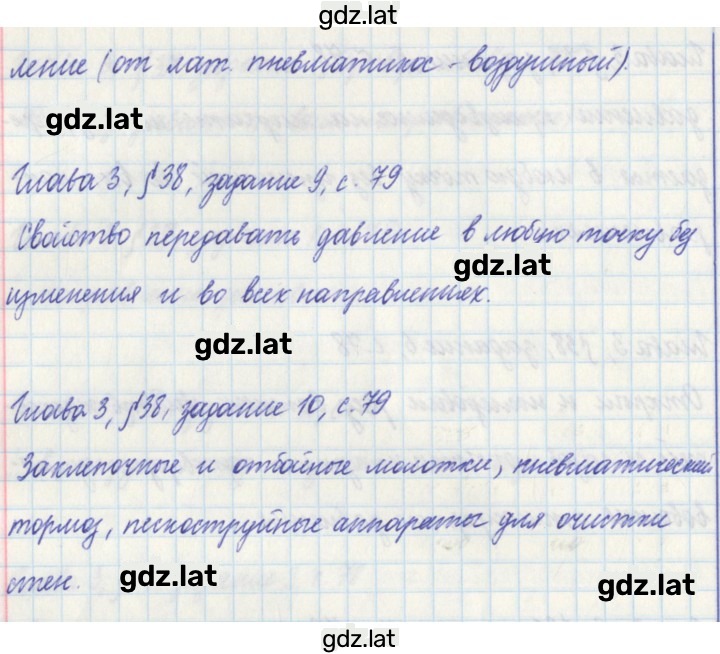 gdz.lat
ление (от лат. пневматикос - воздушный).
gdz.lat
Глава 3, §38, задание 9, с. 79
Свойство передавать давление в любую точку без
gdz.lat
изменения и во всех направлениях.
gdz.lat
Глава 3, §38, задание 10, с. 79
Заклепочные и отбойные молотки, пневматический
тормоз, пескоструйные аппараты для очистки
стен.
gdz.lat
gdz.lat
gdz.lat